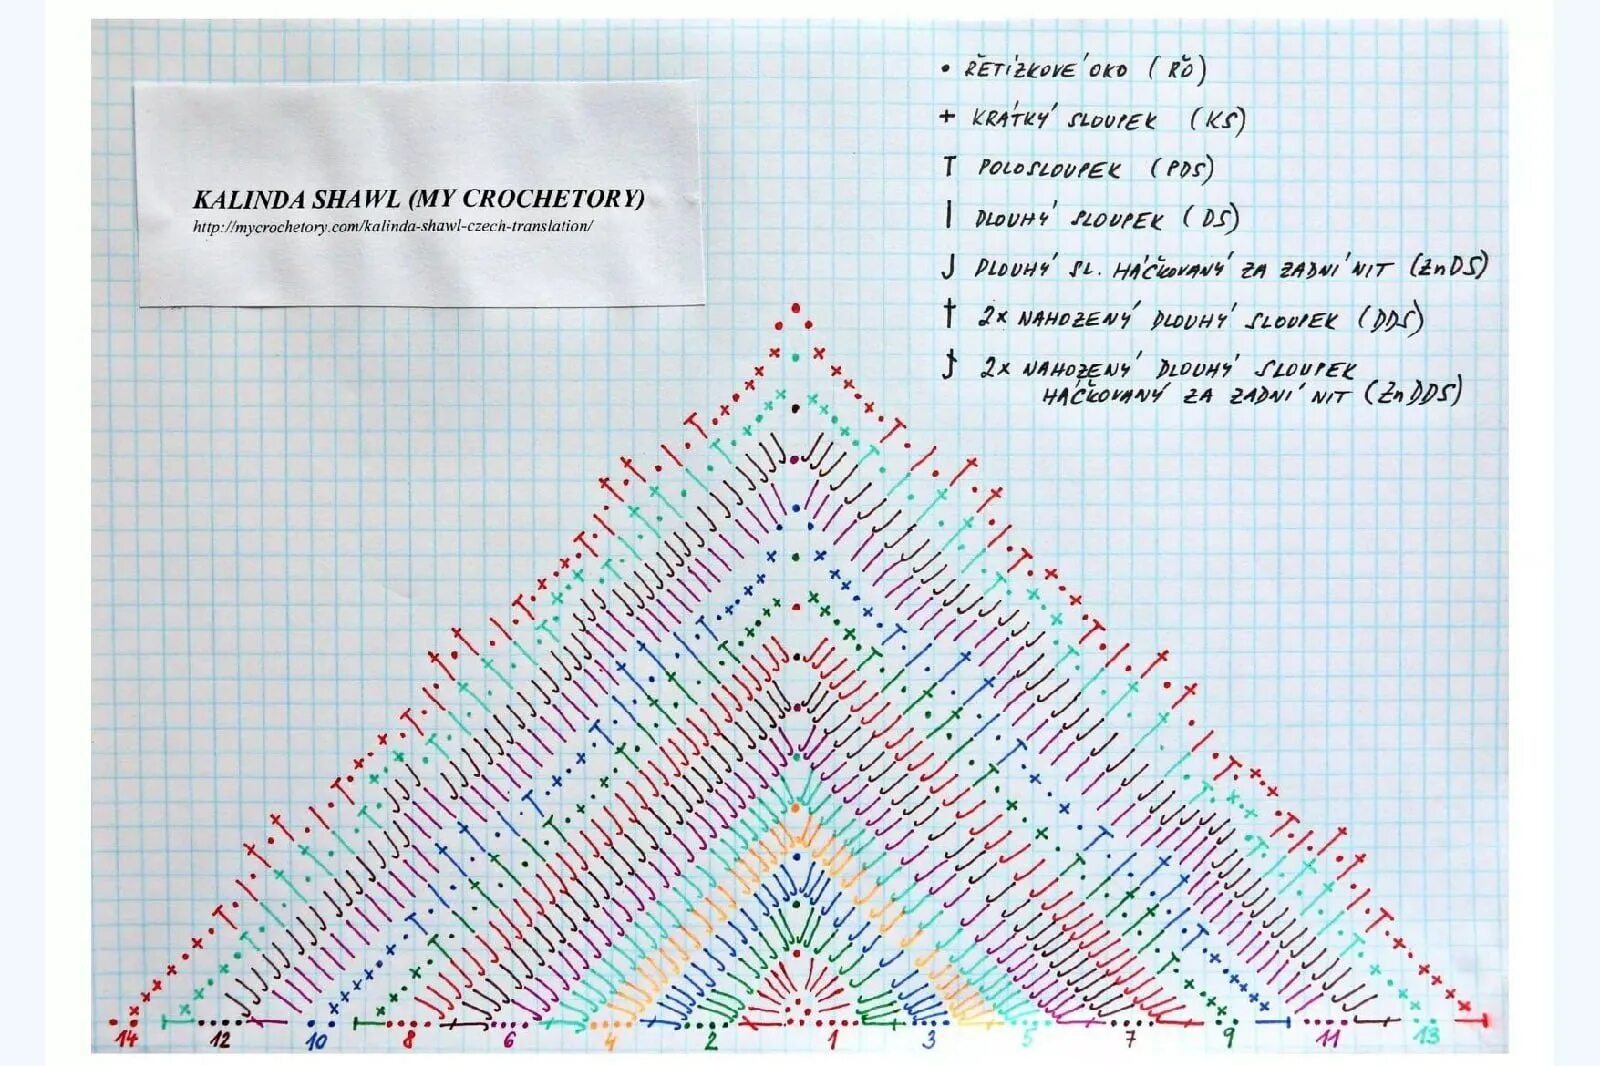 KALINDA SHAWL (MY CROCHETORY)
http://mycrochetory.com/kalinda-shawl-czech-translation/
• ŘETÍZKOVÉ OKO (ŘO)
+ KRÁTKÝ SLOUPEK (KS)
T POLOSLOUPEK (PDS)
| DLOUHÝ SLOUPEK (DS)
J DLOUHÝ SL. HÁČKOVANÝ ZA ZADNÍ NIT (ZnDS)
† 2x NAHOZENÝ DLOUHÝ SLOUPEK (DDS)
2x NAHOZENÝ DLOUHÝ SLOUPEK
HÁČKOVANÝ ZA ZADNÍ NIT (ZnDDS)
14 12 10 8 6 4 2 1 3 5 7 9 11 13